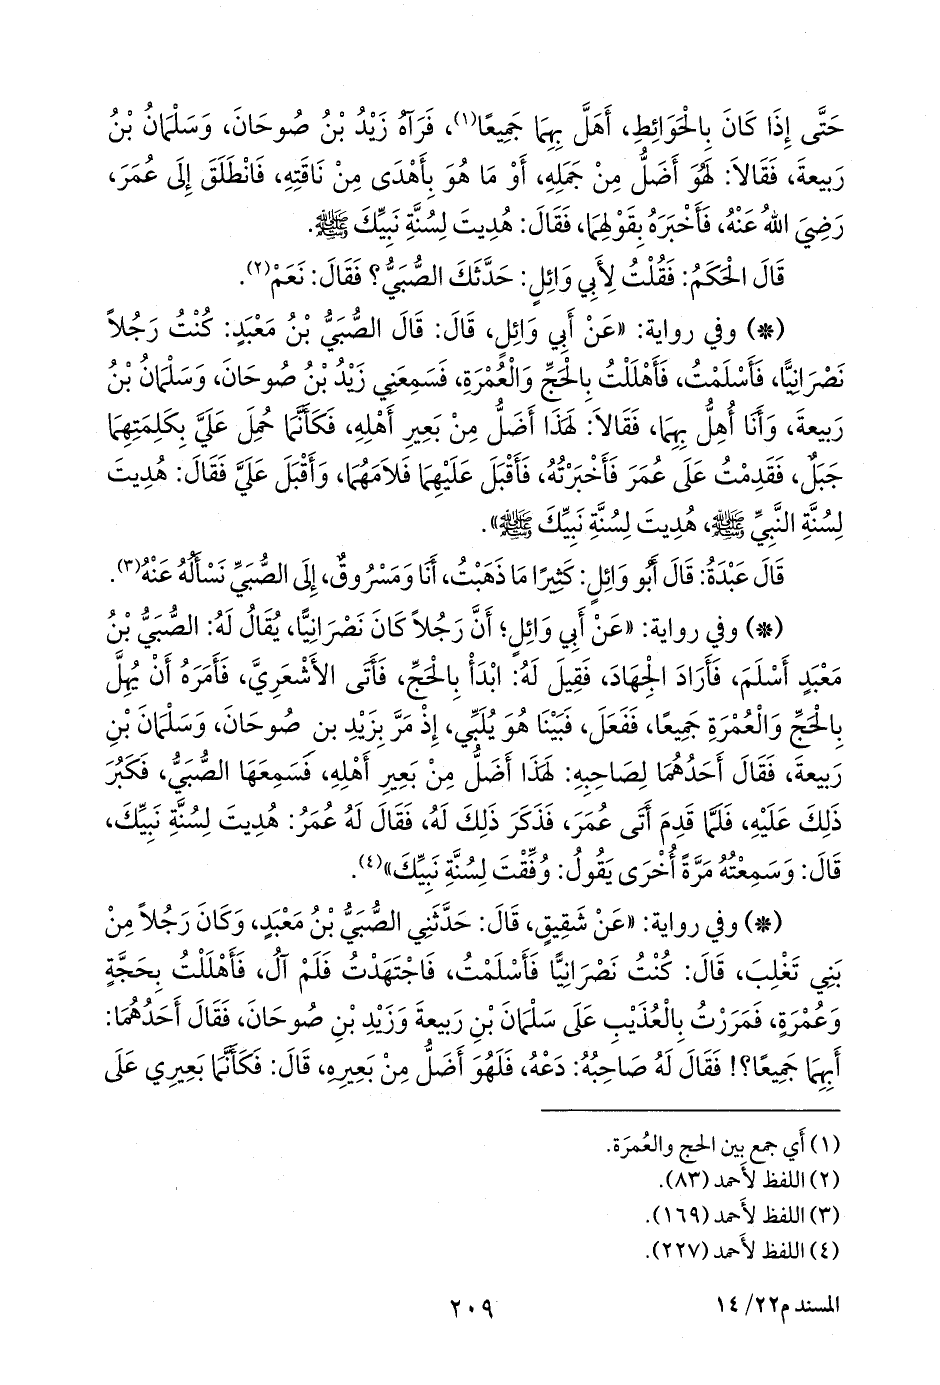 حَتَّى إِذَا كَانَ بِالْحَوَائِطِ، أَهَلَّ بِهِمَا جَمِيعًا(١)، فَرَآهُ زَيْدُ بْنُ صُوحَانَ، وَسَلْمَانُ بْنُ
رَبِيعةَ، فَقَالاَ: لَهُوَ أَضَلُّ مِنْ جَمَلِهِ، أَوْ مَا هُوَ بِأَهْدَى مِنْ نَاقَتِهِ، فَانْطَلَقَ إِلَى عُمَرَ،
رَضِيَ اللهُ عَنْهُ، فَأَخْبَرَهُ بِقَوْلِهِمَا، فَقَالَ: هُدِيتَ لِسُنَّةِ نَبِيِّكَ ﷺ.
قَالَ الْحَكَمُ: فَقُلْتُ لِأَبِي وَائِلٍ: حَدَّثَكَ الصُّبَيُّ؟ فَقَالَ: نَعَمْ(٢).
(*) وفي رواية: «عَنْ أَبِي وَائِلٍ، قَالَ: قَالَ الصُّبَيُّ بْنُ مَعْبَدٍ: كُنْتُ رَجُلاً
نَصْرَانِيًّا، فَأَسْلَمْتُ، فَأَهْلَلْتُ بِالْحَجِّ وَالْعُمْرَةِ، فَسَمِعَنِي زَيْدُ بْنُ صُوحَانَ، وَسَلْمَانُ بْنُ
رَبِيعةَ، وَأَنَا أُهِلُّ بِهِمَا، فَقَالاَ: لَهَذَا أَضَلُّ مِنْ بَعِيرِ أَهْلِهِ، فَكَأَنَّمَا حُمِلَ عَلَيَّ بِكَلِمَتِهِمَا
جَبَلٌ، فَقَدِمْتُ عَلَى عُمَرَ فَأَخْبَرْتُهُ، فَأَقْبَلَ عَلَيْهِمَا فَلاَمَهُمَا، وَأَقْبَلَ عَلَيَّ فَقَالَ: هُدِيتَ
لِسُنَّةِ النَّبِيِّ ﷺ، هُدِيتَ لِسُنَّةِ نَبِيِّكَ ﷺ».
قَالَ عَبْدَةُ: قَالَ أَبُو وَائِلٍ: كَثِيرًا مَا ذَهَبْتُ، أَنَا وَمَسْرُوقٌ، إِلَى الصُّبَيِّ نَسْأَلُهُ عَنْهُ(٣).
(*) وفي رواية: «عَنْ أَبِي وَائِلٍ؛ أَنَّ رَجُلاً كَانَ نَصْرَانِيًّا، يُقَالُ لَهُ: الصُّبَيُّ بْنُ
مَعْبَدٍ أَسْلَمَ، فَأَرَادَ الْجِهَادَ، فَقِيلَ لَهُ: ابْدَأْ بِالْحَجِّ، فَأَتَى الأَشْعَرِيَّ، فَأَمَرَهُ أَنْ يُهِلَّ
بِالْحَجِّ وَالْعُمْرَةِ جَمِيعًا، فَفَعَلَ، فَبَيْنَا هُوَ يُلَبِّي، إِذْ مَرَّ بِزَيْدِ بن صُوحَانَ، وَسَلْمَانَ بْنِ
رَبِيعةَ، فَقَالَ أَحَدُهُمَا لِصَاحِبِهِ: لَهَذَا أَضَلُّ مِنْ بَعِيرِ أَهْلِهِ، فَسَمِعَهَا الصُّبَيُّ، فَكَبُرَ
ذَلِكَ عَلَيْهِ، فَلَمَّا قَدِمَ أَتَى عُمَرَ، فَذَكَرَ ذَلِكَ لَهُ، فَقَالَ لَهُ عُمَرُ: هُدِيتَ لِسُنَّةِ نَبِيِّكَ،
قَالَ: وَسَمِعْتُهُ مَرَّةً أُخْرَى يَقُولُ: وُفِّقْتَ لِسُنَّةِ نَبِيِّكَ»(٤).
(*) وفي رواية: «عَنْ شَقِيقٍ، قَالَ: حَدَّثَنِي الصُّبَيُّ بْنُ مَعْبَدٍ، وَكَانَ رَجُلاً مِنْ
بَنِي تَغْلِبَ، قَالَ: كُنْتُ نَصْرَانِيًّا فَأَسْلَمْتُ، فَاجْتَهَدْتُ فَلَمْ آلُ، فَأَهْلَلْتُ بِحَجَّةٍ
وَعُمْرَةٍ، فَمَرَرْتُ بِالْعُذَيْبِ عَلَى سَلْمَانَ بْنِ رَبِيعةَ وَزَيْدِ بْنِ صُوحَانَ، فَقَالَ أَحَدُهُمَا:
أَبِهِمَا جَمِيعًا؟! فَقَالَ لَهُ صَاحِبُهُ: دَعْهُ، فَلَهُوَ أَضَلُّ مِنْ بَعِيرِهِ، قَالَ: فَكَأَنَّمَا بَعِيرِي عَلَى
(١) أَي جمع بين الحج والعُمرَة.
(٢) اللفظ لأَحمد (٨٣).
(٣) اللفظ لأَحمد (١٦٩).
(٤) اللفظ لأَحمد (٢٢٧).
المسند م٢٢/ ١٤
٢٠٩